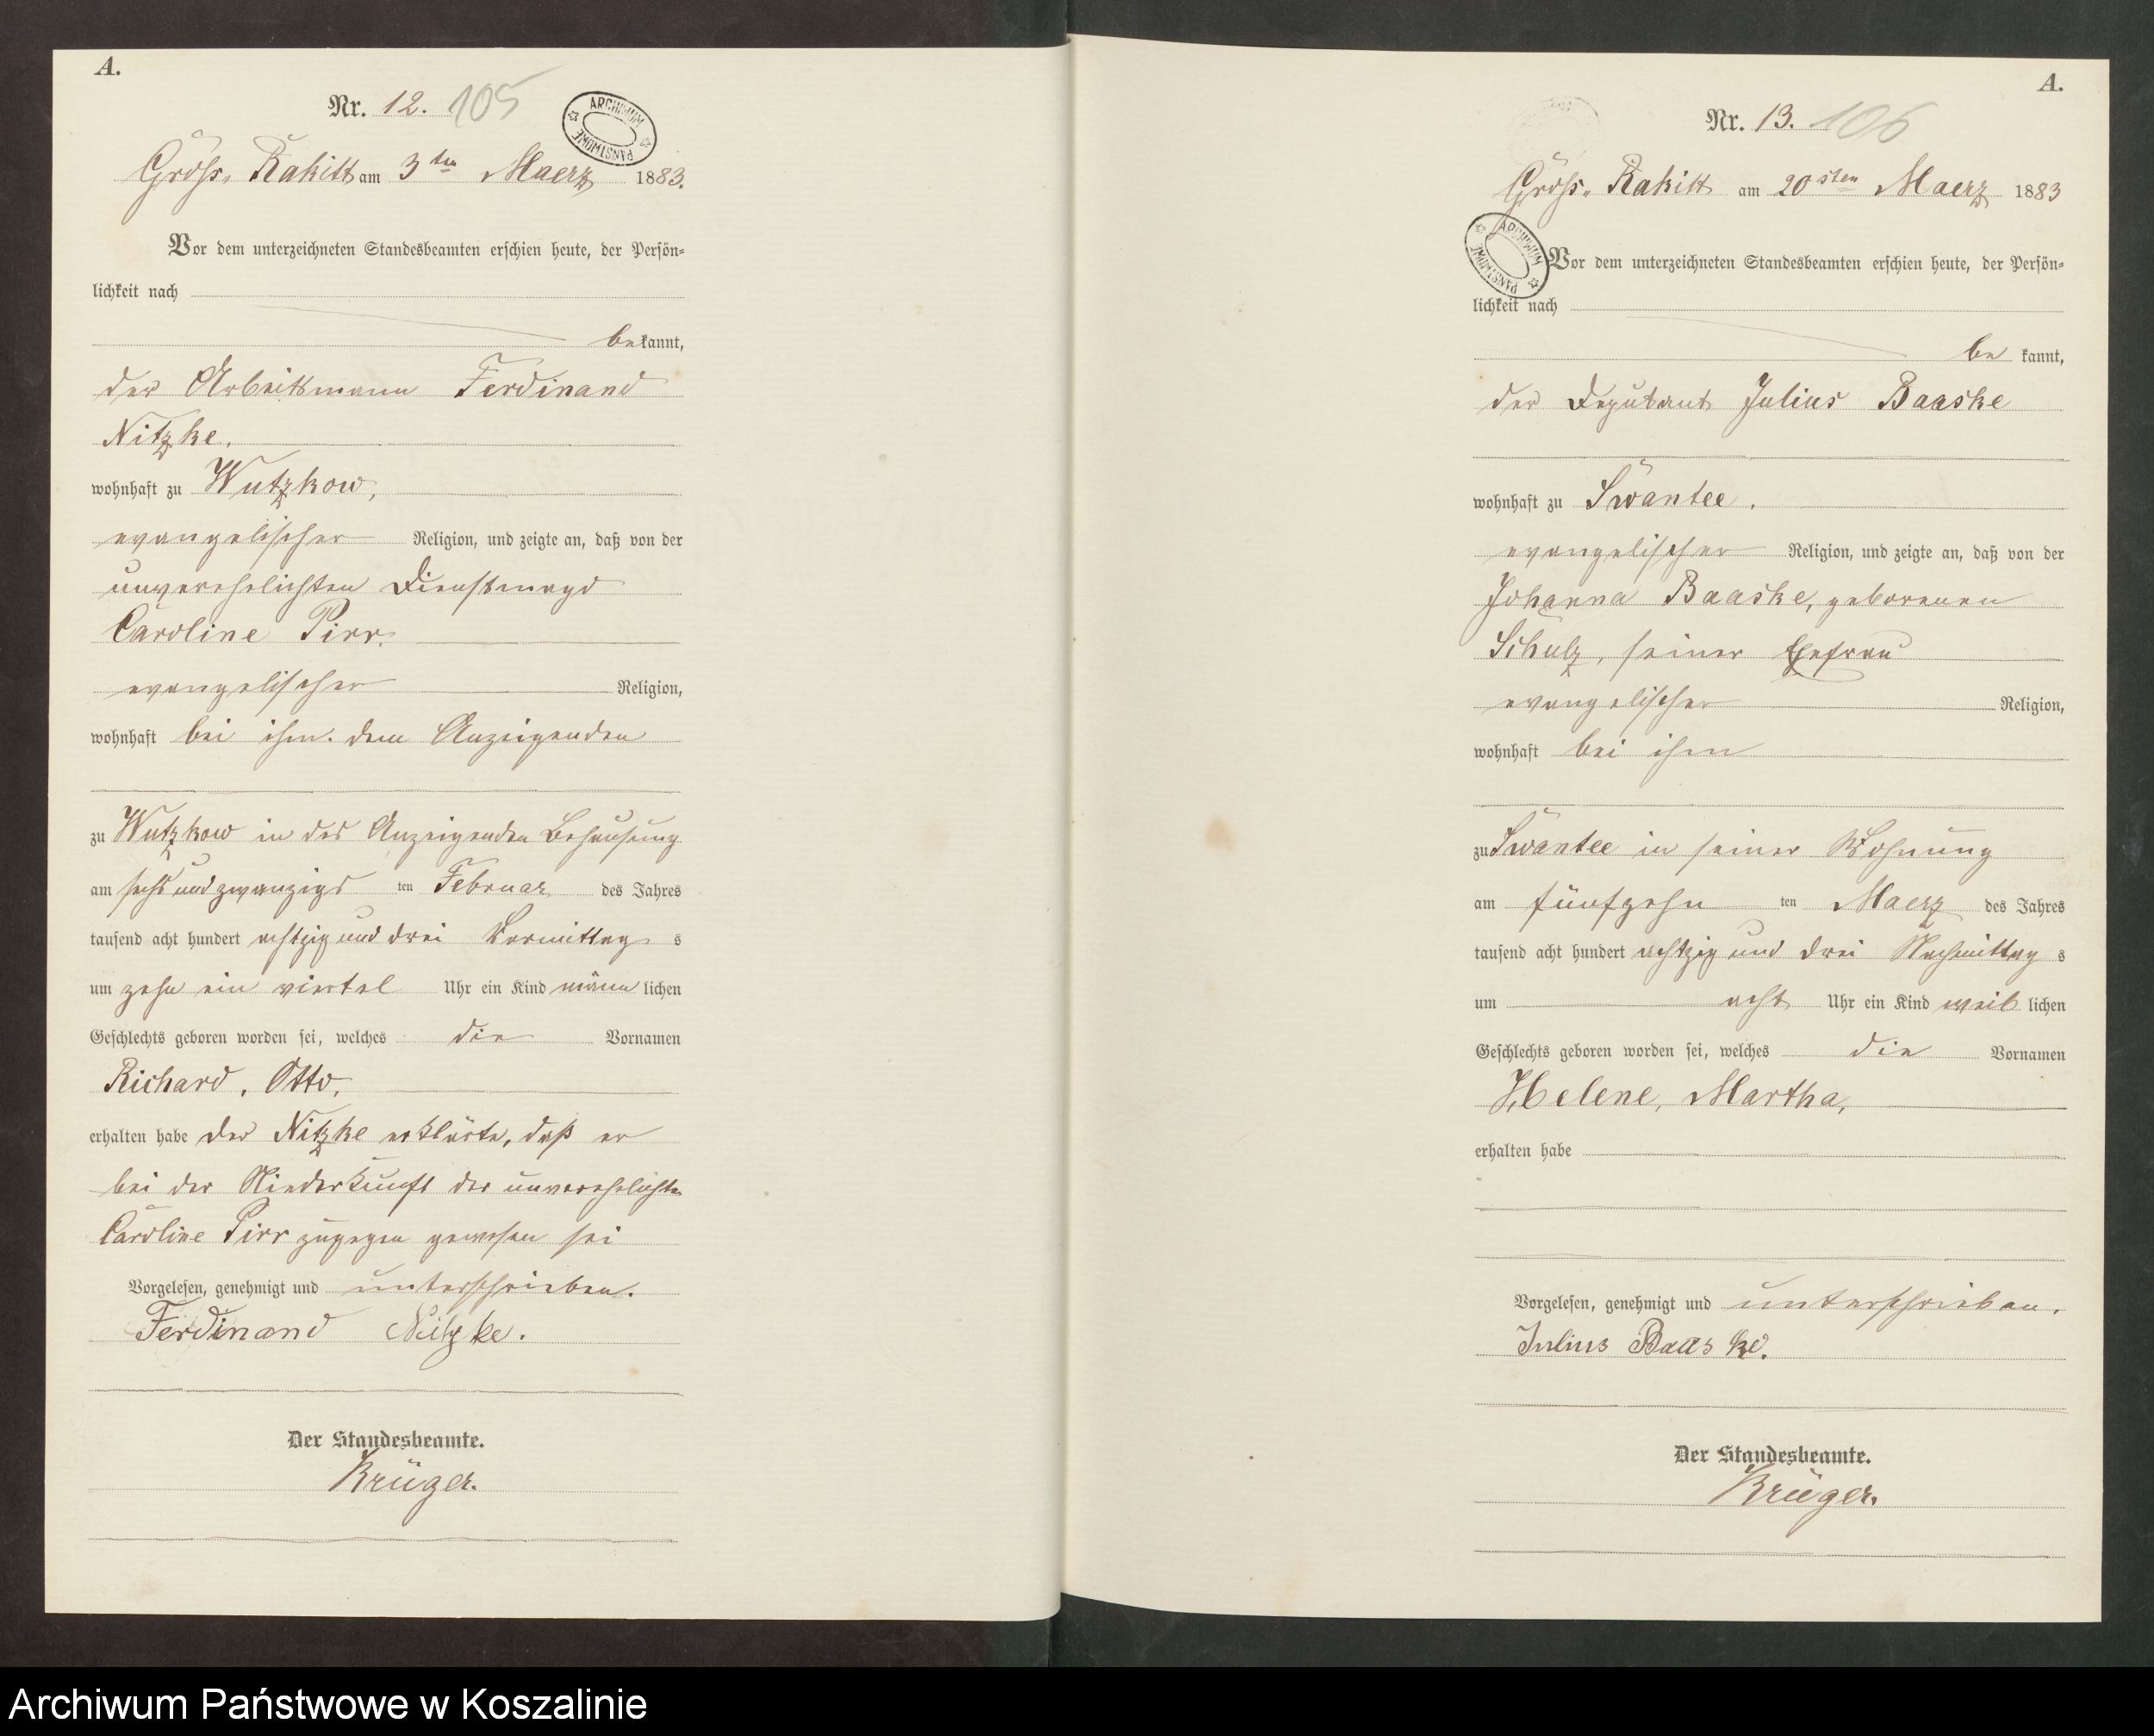 A.
Nr. 12. 105
ARCHIWUM PAŃSTWOWE
Gross. Rakitt am 3ten Maerz 1883.
Vor dem unterzeichneten Standesbeamten erschien heute, der Persön-
lichkeit nach
bekannt,
der Arbeitsmann Ferdinand
Nitzke.
wohnhaft zu Wutzkow,
evangelischer Religion, und zeigte an, daß von der
unverehelichten Dienstmagd
Caroline Pirr.
evangelischer Religion,
wohnhaft bei ihm. dem Anzeigenden
zu Wutzkow in des Anzeigenden Behausung
am sechs und zwanzigs ten Februar des Jahres
tausend acht hundert achtzig und drei Vormittag s
um zehn ein viertel Uhr ein Kind männ lichen
Geschlechts geboren worden sei, welches die Vornamen
Richard, Otto,
erhalten habe der Nitzke erklärte, daß er
bei der Niederkunft der unverehelichten
Caroline Pirr zugegen gewesen sei
Vorgelesen, genehmigt und unterschrieben.
Ferdinand Nitzke.
Der Standesbeamte.
Krüger.
A.
Nr. 13. 106
Gross. Rakitt am 20sten Maerz 1883
ARCHIWUM PAŃSTWOWE
Vor dem unterzeichneten Standesbeamten erschien heute, der Persön-
lichkeit nach
be kannt,
der Deputant Julius Baaske
wohnhaft zu Swantee.
evangelischer Religion, und zeigte an, daß von der
Johanna Baaske, geborenen
Schulz, seiner Ehefrau
evangelischer Religion,
wohnhaft bei ihm
zu Swantee in seiner Wohnung
am fünfzehn ten Maerz des Jahres
tausend acht hundert achtzig und drei Nachmittag s
um acht Uhr ein Kind weib lichen
Geschlechts geboren worden sei, welches die Vornamen
Helene, Martha,
erhalten habe
Vorgelesen, genehmigt und unterschrieben.
Julius Baaske.
Der Standesbeamte.
Krüger.
Archiwum Państwowe w Koszalinie